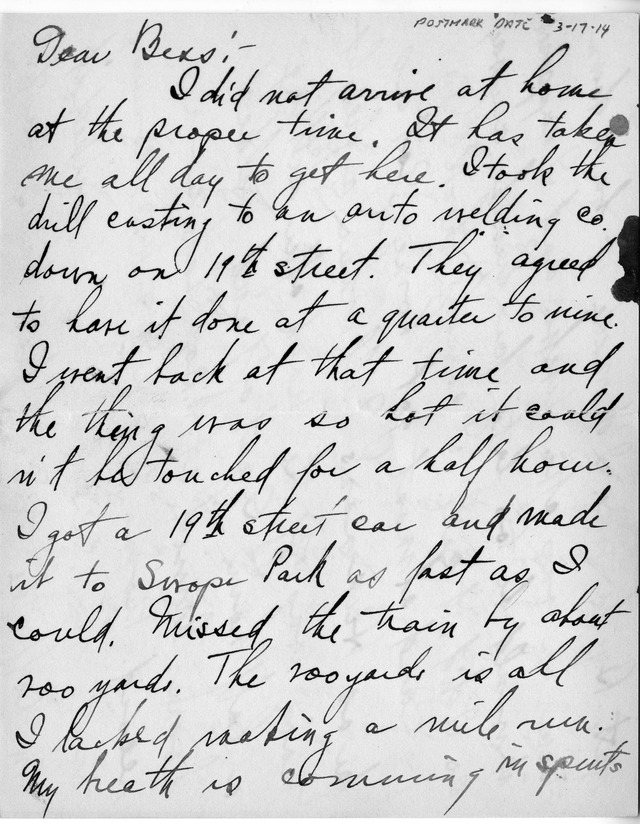 POSTMARK DATE 3-17-14
Dear Bess:-
I did not arrive at home
at the proper time. It has taken
me all day to get here. I took the
drill casting to an auto welding co.
down on 19th street. They agreed
to have it done at a quarter to nine.
I went back at that time and
the thing was so hot it could
n't be touched for a half hour.
I got a 19th street car and made
it to Swope Park as fast as I
could. Missed the train by about
200 yards. The 200 yards is all
I lacked making a mile run.
My breath is comming in spurts